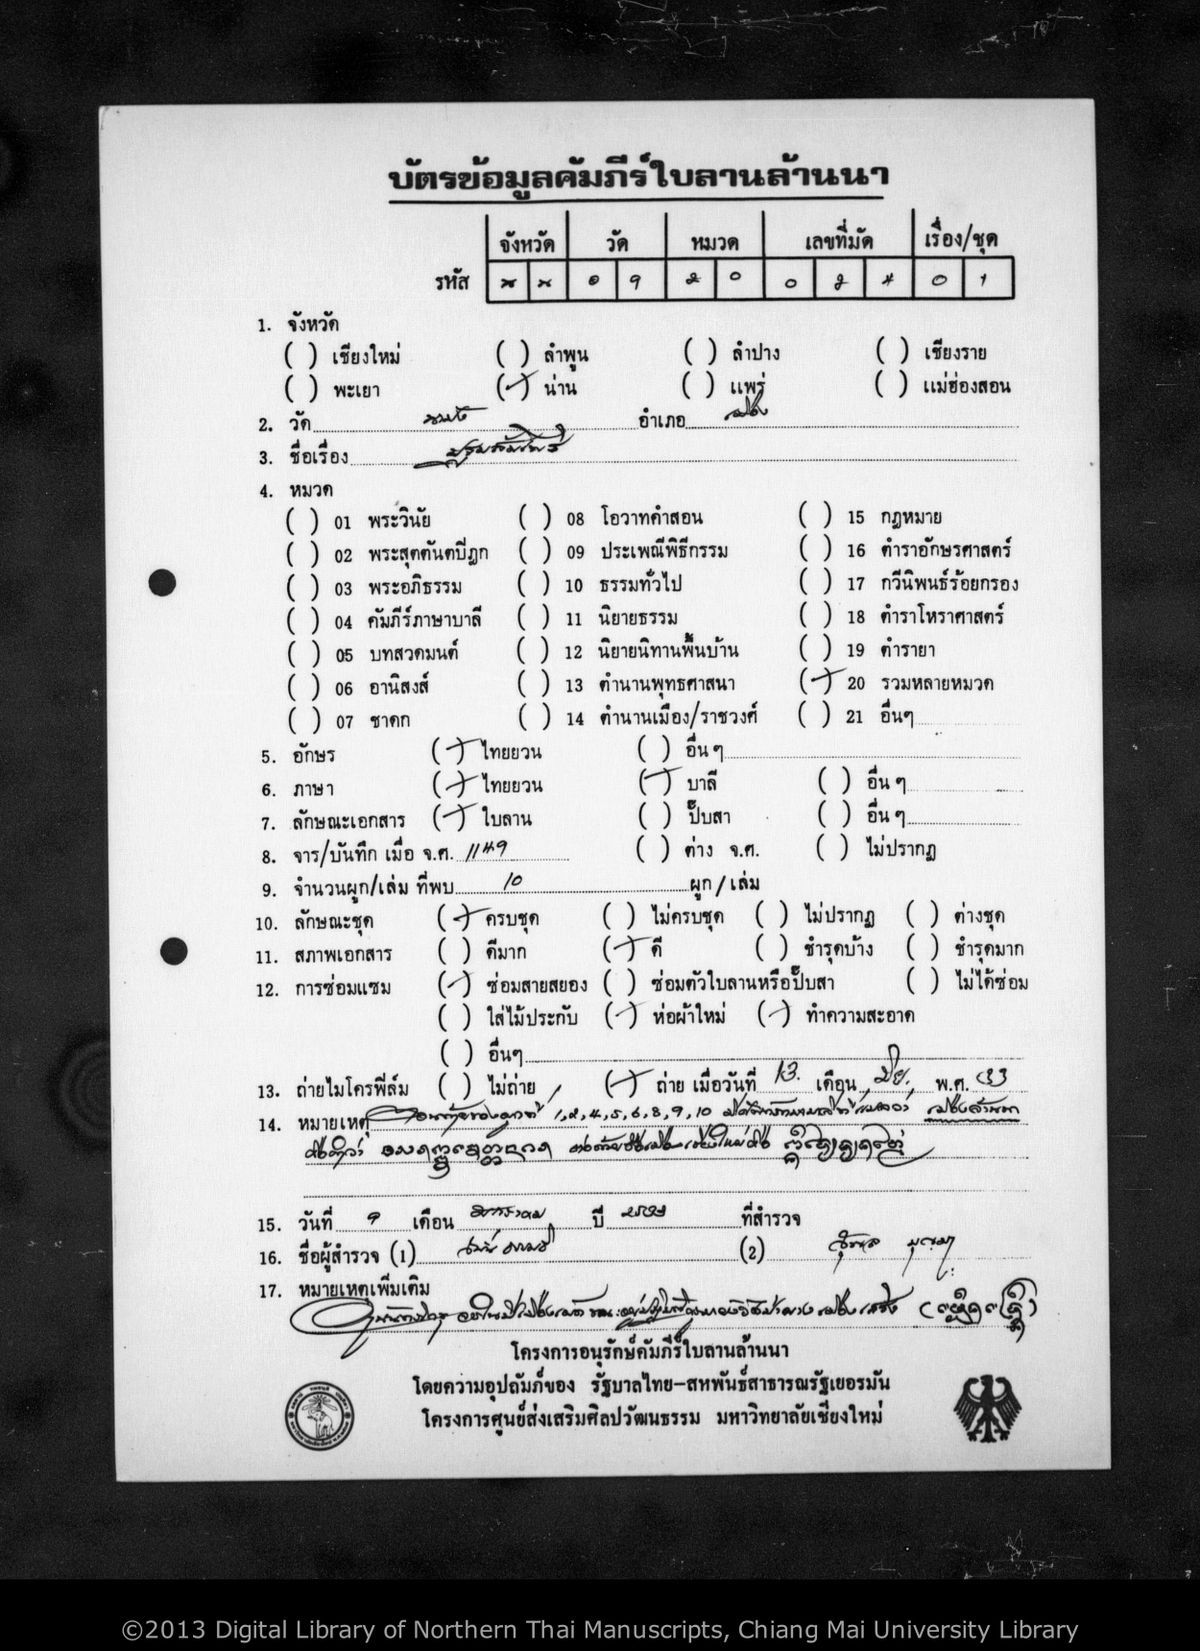 บัตรข้อมูลคัมภีร์ใบลานล้านนา
จังหวัด วัด หมวด เลขที่มัด เรื่อง/ชุด
รหัส
1. จังหวัด
( ) เชียงใหม่ ( ) ลำพูน ( ) ลำปาง ( ) เชียงราย
( ) พะเยา (✓) น่าน ( ) แพร่ ( ) แม่ฮ่องสอน
2. วัด อำเภอ
3. ชื่อเรื่อง
4. หมวด
( ) 01 พระวินัย ( ) 08 โอวาทคำสอน ( ) 15 กฎหมาย
( ) 02 พระสุตตันตปิฎก ( ) 09 ประเพณีพิธีกรรม ( ) 16 ตำราอักษรศาสตร์
( ) 03 พระอภิธรรม ( ) 10 ธรรมทั่วไป ( ) 17 กวีนิพนธ์ร้อยกรอง
( ) 04 คัมภีร์ภาษาบาลี ( ) 11 นิยายธรรม ( ) 18 ตำราโหราศาสตร์
( ) 05 บทสวดมนต์ ( ) 12 นิยายนิทานพื้นบ้าน ( ) 19 ตำรายา
( ) 06 อานิสงส์ ( ) 13 ตำนานพุทธศาสนา (✓) 20 รวมหลายหมวด
( ) 07 ชาดก ( ) 14 ตำนานเมือง/ราชวงศ์ ( ) 21 อื่นๆ
5. อักษร (✓) ไทยยวน ( ) อื่นๆ
6. ภาษา (✓) ไทยยวน (✓) บาลี ( ) อื่นๆ
7. ลักษณะเอกสาร (✓) ใบลาน ( ) ปั๊บสา ( ) อื่นๆ
8. จาร/บันทึก เมื่อ จ.ศ. 1149 ( ) ต่าง จ.ศ. ( ) ไม่ปรากฏ
9. จำนวนผูก/เล่ม ที่พบ 10 ผูก/เล่ม
10. ลักษณะชุด (✓) ครบชุด ( ) ไม่ครบชุด ( ) ไม่ปรากฏ ( ) ต่างชุด
11. สภาพเอกสาร ( ) ดีมาก (✓) ดี ( ) ชำรุดบ้าง ( ) ชำรุดมาก
12. การซ่อมแซม (✓) ซ่อมสายสยอง ( ) ซ่อมตัวใบลานหรือปั๊บสา ( ) ไม่ได้ซ่อม
( ) ใส่ไม้ประกับ (✓) ห่อผ้าใหม่ (✓) ทำความสะอาด
( ) อื่นๆ
13. ถ่ายไมโครฟิล์ม ( ) ไม่ถ่าย (✓) ถ่าย เมื่อวันที่ 13 เดือน พ.ศ.
14. หมายเหตุ
15. วันที่ เดือน ปี ที่สำรวจ
16. ชื่อผู้สำรวจ (1) (2)
17. หมายเหตุเพิ่มเติม
โครงการอนุรักษ์คัมภีร์ใบลานล้านนา
โดยความอุปถัมภ์ของ รัฐบาลไทย-สหพันธ์สาธารณรัฐเยอรมัน
โครงการศูนย์ส่งเสริมศิลปวัฒนธรรม มหาวิทยาลัยเชียงใหม่
©2013 Digital Library of Northern Thai Manuscripts, Chiang Mai University Library